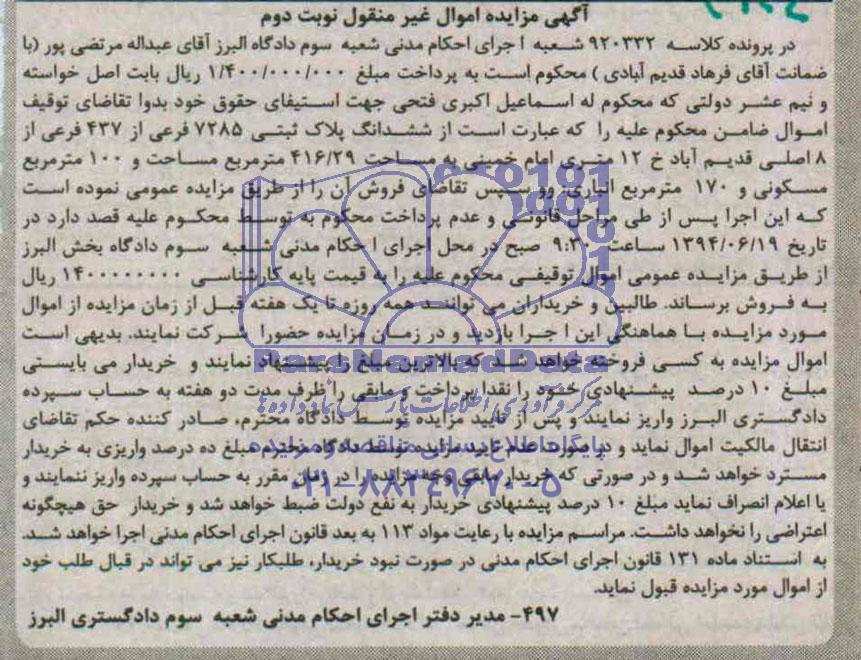 آگهی مزایده اموال غیر منقول نوبت دوم
در پرونده کلاسه ۹۲۰۳۳۲ شعبه اجرای احکام مدنی شعبه سوم دادگاه البرز آقای عبداله مرتضی پور (با
ضمانت آقای فرهاد قدیم آبادی) محکوم است به پرداخت مبلغ ۱/۴۰۰/۰۰۰/۰۰۰ ریال بابت اصل خواسته
و نیم عشر دولتی که محکوم له اسماعیل اکبری فتحی جهت استیفای حقوق خود بدوا تقاضای توقیف
اموال ضامن محکوم علیه را که عبارت است از ششدانگ پلاک ثبتی ۷۲۸۵ فرعی از ۴۳۷ فرعی از
۸ اصلی قدیم آباد خ ۱۲ متری امام خمینی به مساحت ۴۱۶/۲۹ مترمربع مساحت و ۱۰۰ مترمربع
مسکونی و ۱۷۰ مترمربع انباری، وو سپس تقاضای فروش آن را از طریق مزایده عمومی نموده است
که این اجرا پس از طی مراحل قانونی و عدم پرداخت محکوم به توسط محکوم علیه قصد دارد در
تاریخ ۱۳۹۴/۰۶/۱۹ ساعت ۹:۳۰ صبح در محل اجرای احکام مدنی شعبه سوم دادگاه بخش البرز
از طریق مزایده عمومی اموال توقیفی محکوم علیه را به قیمت پایه کارشناسی ۱۴۰۰۰۰۰۰۰۰ ریال
به فروش برساند. طالبین و خریداران می توانند همه روزه تا یک هفته قبل از زمان مزایده از اموال
مورد مزایده با هماهنگی این اجرا بازدید و در زمان مزایده حضورا شرکت نمایند. بدیهی است
اموال مزایده به کسی فروخته خواهد شد که بالاترین مبلغ را پیشنهاد نمایند و خریدار می بایستی
مبلغ ۱۰ درصد پیشنهادی خود را نقدا پرداخت و مابقی را ظرف مدت دو هفته به حساب سپرده
دادگستری البرز واریز نمایند و پس از تایید مزایده توسط دادگاه محترم، صادر کننده حکم تقاضای
انتقال مالکیت اموال نماید و در صورت عدم تایید مزایده توسط دادگاه محترم مبلغ ده درصد واریزی به خریدار
مسترد خواهد شد و در صورتی که خریدار مابقی وجه مزایده را در زمان مقرر به حساب سپرده واریز ننمایند و
یا اعلام انصراف نماید مبلغ ۱۰ درصد پیشنهادی خریدار به نفع دولت ضبط خواهد شد و خریدار حق هیچگونه
اعتراضی را نخواهد داشت. مراسم مزایده با رعایت مواد ۱۱۳ به بعد قانون اجرای احکام مدنی اجرا خواهد شد.
به استناد ماده ۱۳۱ قانون اجرای احکام مدنی در صورت نبود خریدار، طلبکار نیز می تواند در قبال طلب خود
از اموال مورد مزایده قبول نماید.
۴۹۷- مدیر دفتر اجرای احکام مدنی شعبه سوم دادگستری البرز
ParsNamadData
مرکز فرآوری اطلاعات پارس نماد داده‌ها
پایگاه اطلاع رسانی مناقصه و مزایده
۰۲۱-۸۸۳۴۹۶۷۰-۵